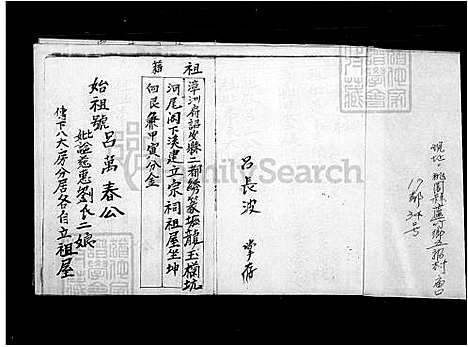 現址：桃園縣蘆竹鄉五福村
17鄰34号
呂長波
祖籍
漳洲府詔安縣二都綉篆埔龍玉橫坑
河尾閣下溪建立宗祠祖屋坐坤
向艮兼甲寅分金
始祖號呂萬春公
妣諡慈惠劉氏二娘
傳下八大房分居各自立祖屋
FamilySearch